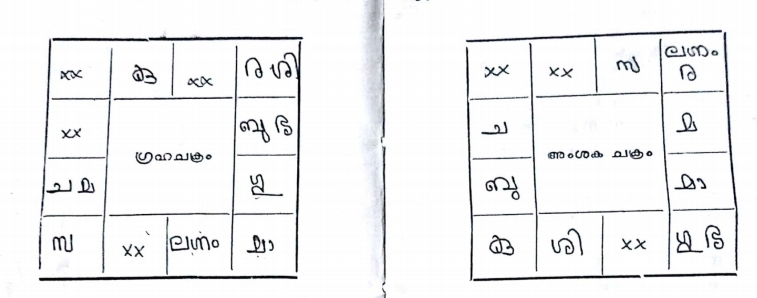 xx കു xx ര ശി
xx ബു
ഗ്രഹചക്രം
ച മ ഗു
സ xx ലഗ്നം മാ
xx xx സ ലഗ്നം
ര
ച മ
അംശക ചക്രം
ബു മാ
കു ശി xx ഗു